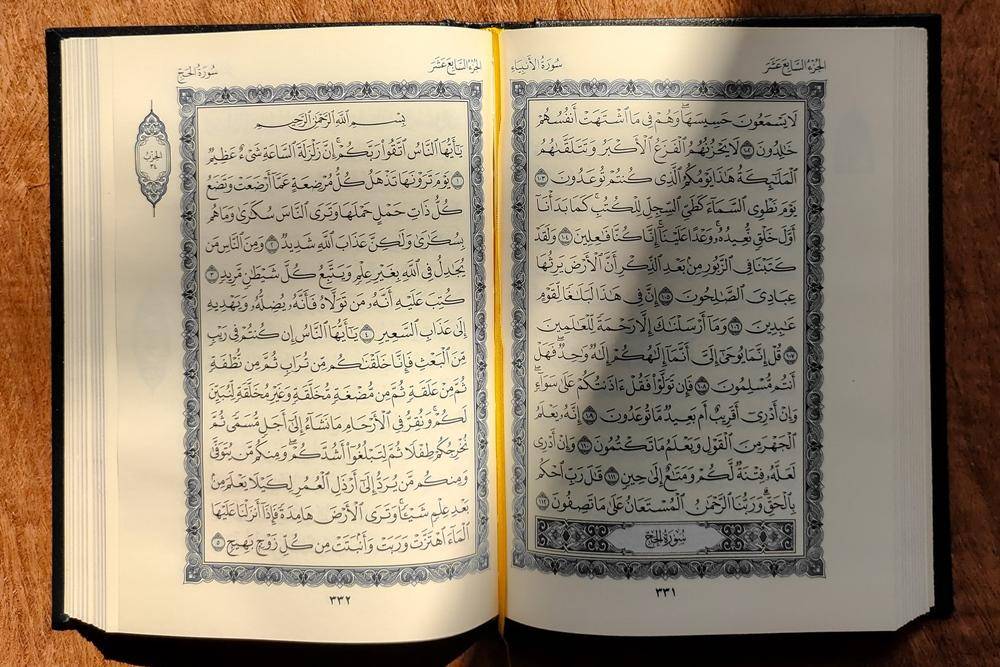 الجزء السابع عشر
سورة الأنبياء
لَا يَسْمَعُونَ حَسِيسَهَا ۖ وَهُمْ فِي مَا ٱشْتَهَتْ أَنفُسُهُمْ
خَٰلِدُونَ ١٠٢ لَا يَحْزُنُهُمُ ٱلْفَزَعُ ٱلْأَكْبَرُ وَتَتَلَقَّىٰهُمُ
ٱلْمَلَٰٓئِكَةُ هَٰذَا يَوْمُكُمُ ٱلَّذِي كُنتُمْ تُوعَدُونَ ١٠٣
يَوْمَ نَطْوِي ٱلسَّمَآءَ كَطَيِّ ٱلسِّجِلِّ لِلْكُتُبِ ۚ كَمَا بَدَأْنَآ
أَوَّلَ خَلْقٍ نُّعِيدُهُۥ ۚ وَعْدًا عَلَيْنَآ ۚ إِنَّا كُنَّا فَٰعِلِينَ ١٠٤ وَلَقَدْ
كَتَبْنَا فِي ٱلزَّبُورِ مِنۢ بَعْدِ ٱلذِّكْرِ أَنَّ ٱلْأَرْضَ يَرِثُهَا
عِبَادِيَ ٱلصَّٰلِحُونَ ١٠٥ إِنَّ فِي هَٰذَا لَبَلَٰغًا لِّقَوْمٍ
عَٰبِدِينَ ١٠٦ وَمَآ أَرْسَلْنَٰكَ إِلَّا رَحْمَةً لِّلْعَٰلَمِينَ
١٠٧ قُلْ إِنَّمَا يُوحَىٰٓ إِلَيَّ أَنَّمَآ إِلَٰهُكُمْ إِلَٰهٌ وَٰحِدٌ ۖ فَهَلْ
أَنتُم مُّسْلِمُونَ ١٠٨ فَإِن تَوَلَّوْا۟ فَقُلْ ءَاذَنتُكُمْ عَلَىٰ سَوَآءٍ ۖ
وَإِنْ أَدْرِيٓ أَقَرِيبٌ أَم بَعِيدٌ مَّا تُوعَدُونَ ١٠٩ إِنَّهُۥ يَعْلَمُ
ٱلْجَهْرَ مِنَ ٱلْقَوْلِ وَيَعْلَمُ مَا تَكْتُمُونَ ١١٠ وَإِنْ أَدْرِي
لَعَلَّهُۥ فِتْنَةٌ لَّكُمْ وَمَتَٰعٌ إِلَىٰ حِينٍ ١١١ قَٰلَ رَبِّ ٱحْكُم
بِٱلْحَقِّ ۗ وَرَبُّنَا ٱلرَّحْمَٰنُ ٱلْمُسْتَعَانُ عَلَىٰ مَا تَصِفُونَ ١١٢
سورة الحج
٣٣١
الجزء السابع عشر
سورة الحج
الحزب
٣٤
بِسْمِ ٱللَّهِ ٱلرَّحْمَٰنِ ٱلرَّحِيمِ
يَٰٓأَيُّهَا ٱلنَّاسُ ٱتَّقُوا۟ رَبَّكُمْ ۚ إِنَّ زَلْزَلَةَ ٱلسَّاعَةِ شَيْءٌ عَظِيمٌ
١ يَوْمَ تَرَوْنَهَا تَذْهَلُ كُلُّ مُرْضِعَةٍ عَمَّآ أَرْضَعَتْ وَتَضَعُ
كُلُّ ذَاتِ حَمْلٍ حَمْلَهَا وَتَرَى ٱلنَّاسَ سُكَٰرَىٰ وَمَا هُم
بِسُكَٰرَىٰ وَلَٰكِنَّ عَذَابَ ٱللَّهِ شَدِيدٌ ٢ وَمِنَ ٱلنَّاسِ مَن
يُجَٰدِلُ فِي ٱللَّهِ بِغَيْرِ عِلْمٍ وَيَتَّبِعُ كُلَّ شَيْطَٰنٍ مَّرِيدٍ ٣
كُتِبَ عَلَيْهِ أَنَّهُۥ مَن تَوَلَّاهُ فَأَنَّهُۥ يُضِلُّهُۥ وَيَهْدِيهِ
إِلَىٰ عَذَابِ ٱلسَّعِيرِ ٤ يَٰٓأَيُّهَا ٱلنَّاسُ إِن كُنتُمْ فِي رَيْبٍ
مِّنَ ٱلْبَعْثِ فَإِنَّا خَلَقْنَٰكُم مِّن تُرَابٍ ثُمَّ مِن نُّطْفَةٍ
ثُمَّ مِنْ عَلَقَةٍ ثُمَّ مِن مُّضْغَةٍ مُّخَلَّقَةٍ وَغَيْرِ مُخَلَّقَةٍ لِّنُبَيِّنَ
لَكُمْ ۚ وَنُقِرُّ فِي ٱلْأَرْحَامِ مَا نَشَآءُ إِلَىٰٓ أَجَلٍ مُّسَمًّى ثُمَّ
نُخْرِجُكُمْ طِفْلًا ثُمَّ لِتَبْلُغُوٓا۟ أَشُدَّكُمْ ۖ وَمِنكُم مَّن يُتَوَفَّىٰ
وَمِنكُم مَّن يُرَدُّ إِلَىٰٓ أَرْذَلِ ٱلْعُمُرِ لِكَيْلَا يَعْلَمَ مِنۢ
بَعْدِ عِلْمٍ شَيْـًٔا ۚ وَتَرَى ٱلْأَرْضَ هَامِدَةً فَإِذَآ أَنزَلْنَا عَلَيْهَا
ٱلْمَآءَ ٱهْتَزَّتْ وَرَبَتْ وَأَنۢبَتَتْ مِن كُلِّ زَوْجٍۭ بَهِيجٍ ٥
٣٣٢